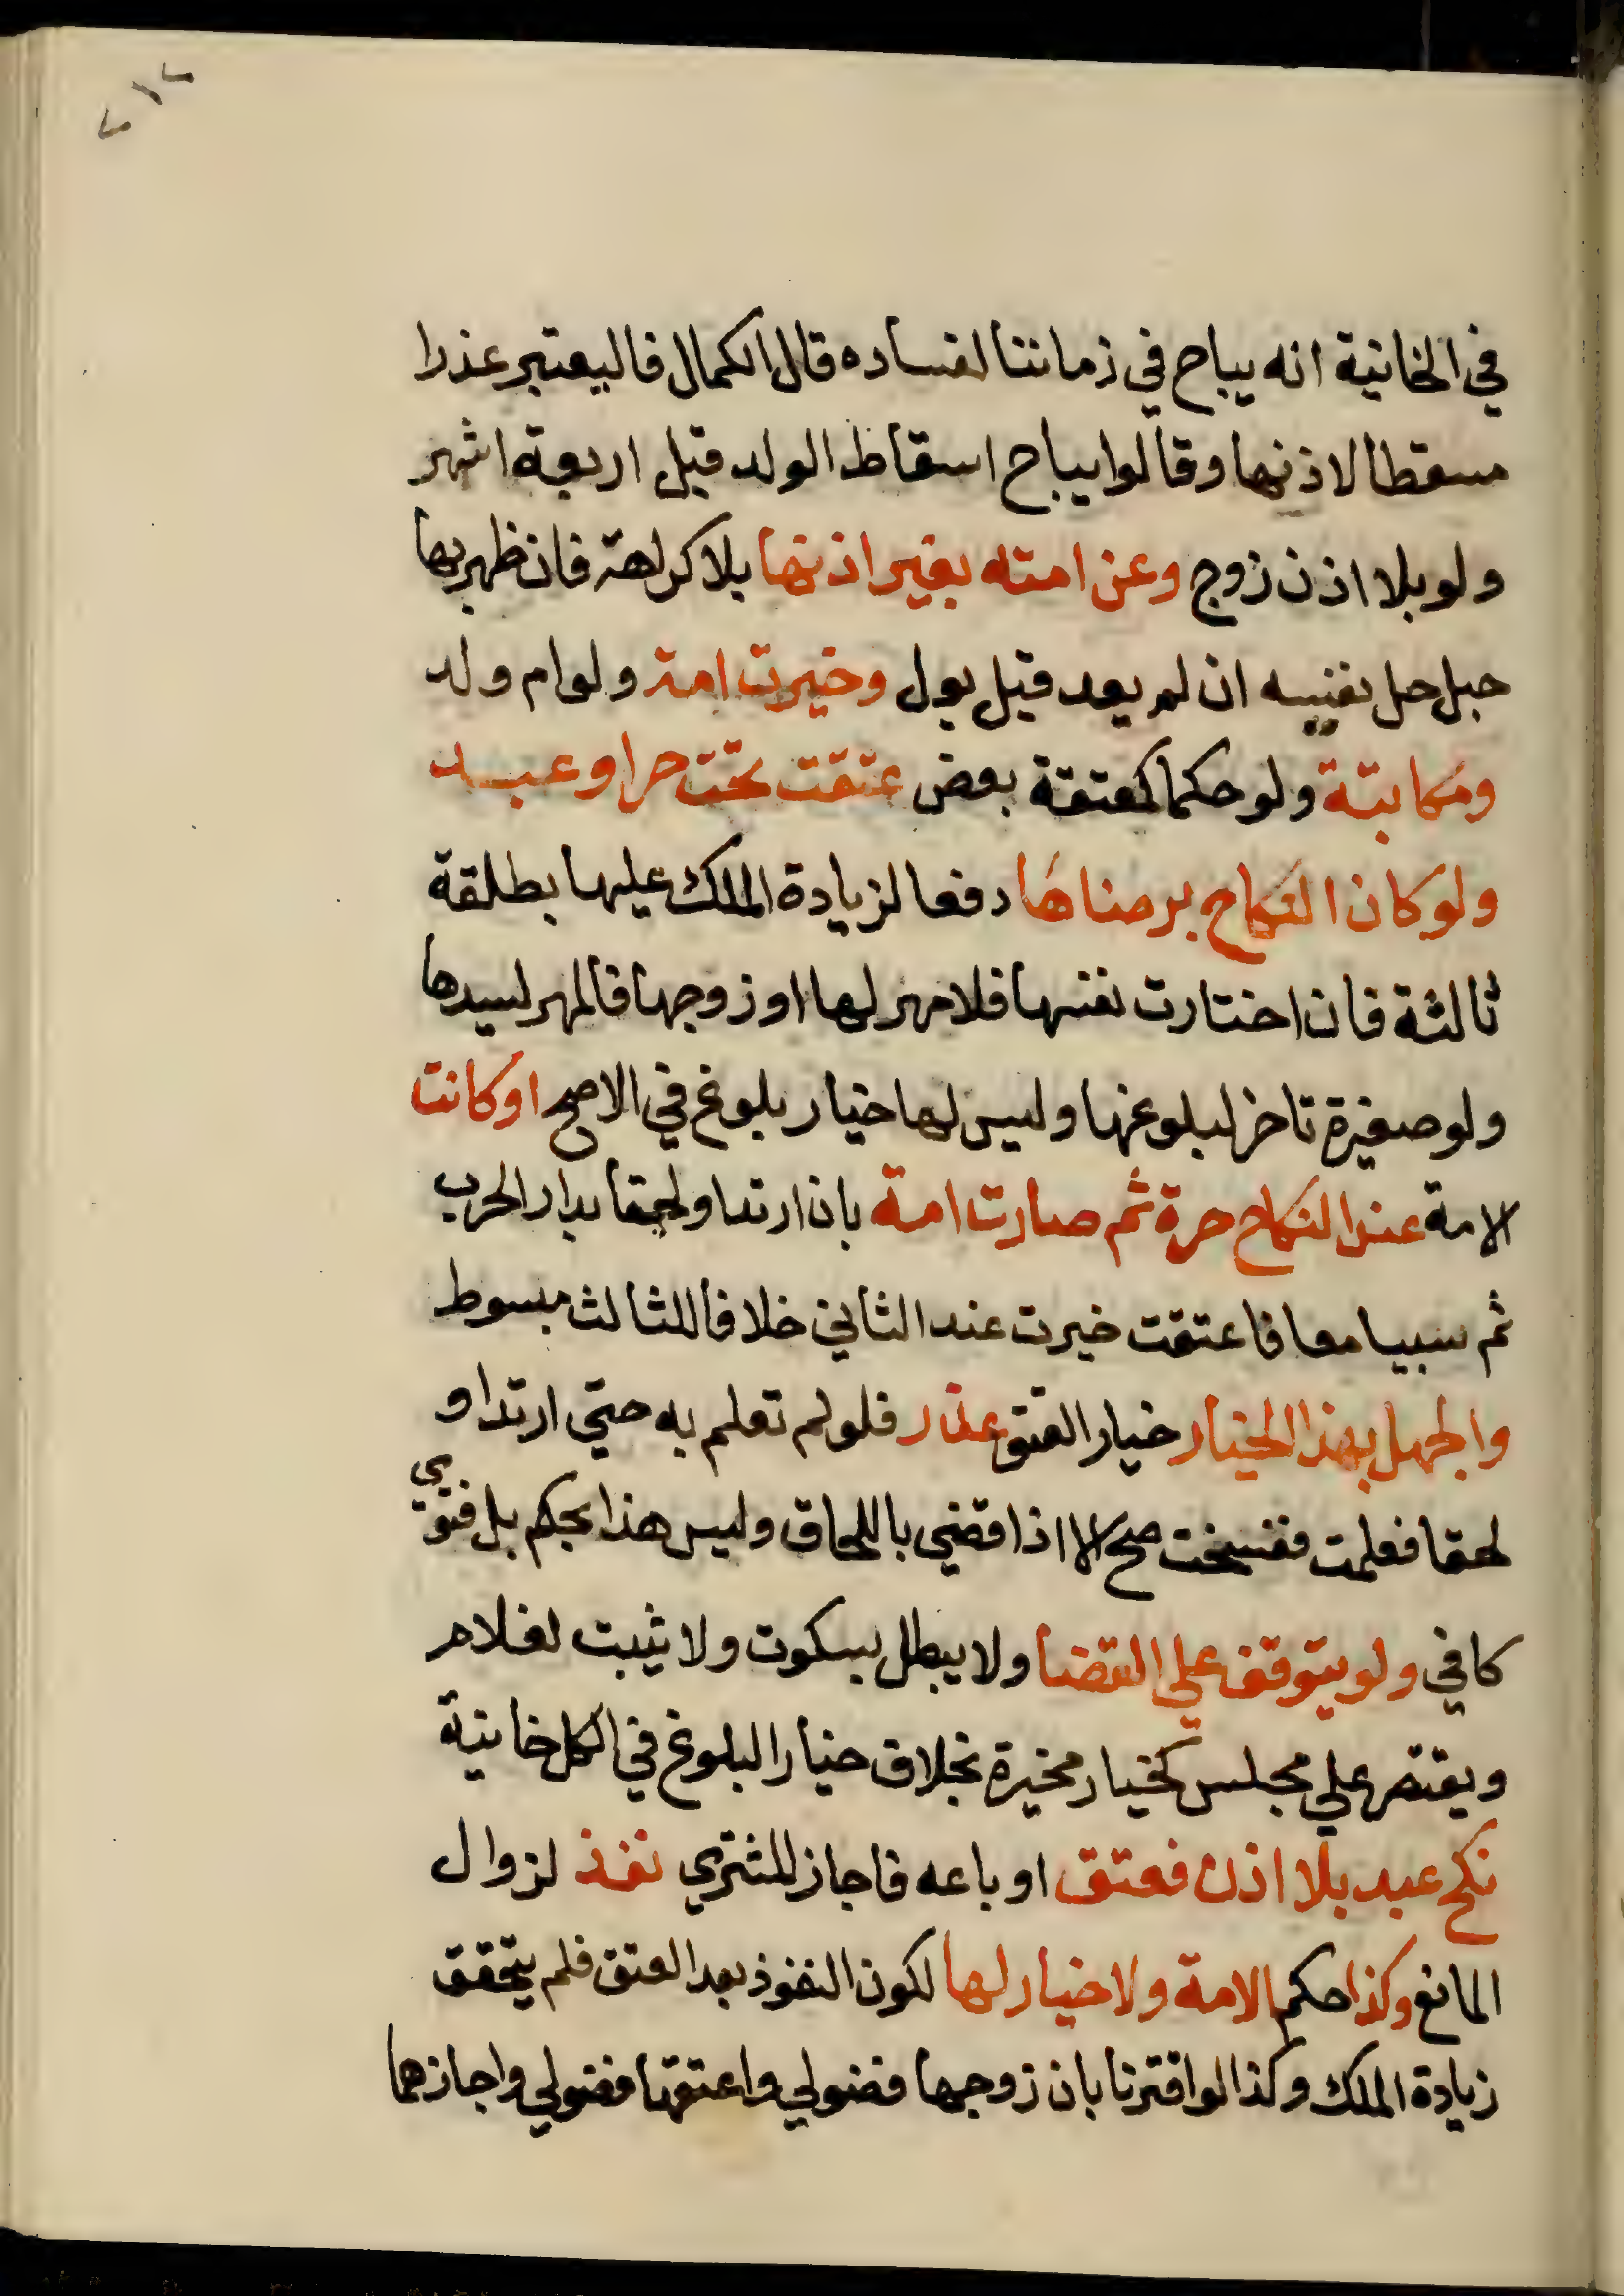 ٢١٢
في الخانية انه يباح في زماننا لفساده قال الكمال فاليعتبر عذرا
مسقطا لاذنها وقالوا يباح اسقاط الولد قبل اربعة اشهر
ولو بلا اذن زوج وعن امته بغير اذنها بلا كراهة فان ظهر بها
حبل حل نفييه ان لم يعد قبل بول وخيرت امة ولو ام ولد
ومكاتبة ولو حكما كمعتقة بعض عتقت تحت حر او عبد
ولو كان النكاح برضاها دفعا لزيادة الملك عليها بطلقة
ثالثة فان اختارت نفسها فلا مهر لها او زوجها فالمهر لسيدها
ولو صغيرة تاخر لبلوغها وليس لها خيار بلوغ في الاصح او كانت
الامة عند النكاح حرة ثم صارت امة بان ارتدا ولحقا بدار الحرب
ثم سبيا معا فاعتقت خيرت عند الثاني خلافا للثالث مبسوط
والجهل بهذا الخيار خيار العتق عذر فلو لم تعلم به حتي ارتدا و
لحقا فعلمت ففسخت صح الا اذا قضي باللحاق وليس هذا بحكم بل فتوي
كافي ولو يتوقف علي القضا ولا يبطل بسكوت ولا يثبت لغلام
ويقتصر علي مجلس كخيار مخيرة بخلاف خيار البلوغ في الكل خانية
نكح عبد بلا اذن فعتق او باعه فاجاز المشتري نفذ لزوال
المانع وكذا حكم الامة ولا خيار لها لكون النفوذ بعد العتق فلم يتحقق
زيادة الملك وكذا لو اقترنا بان زوجها فضولي واعتقها فضولي واجازهما